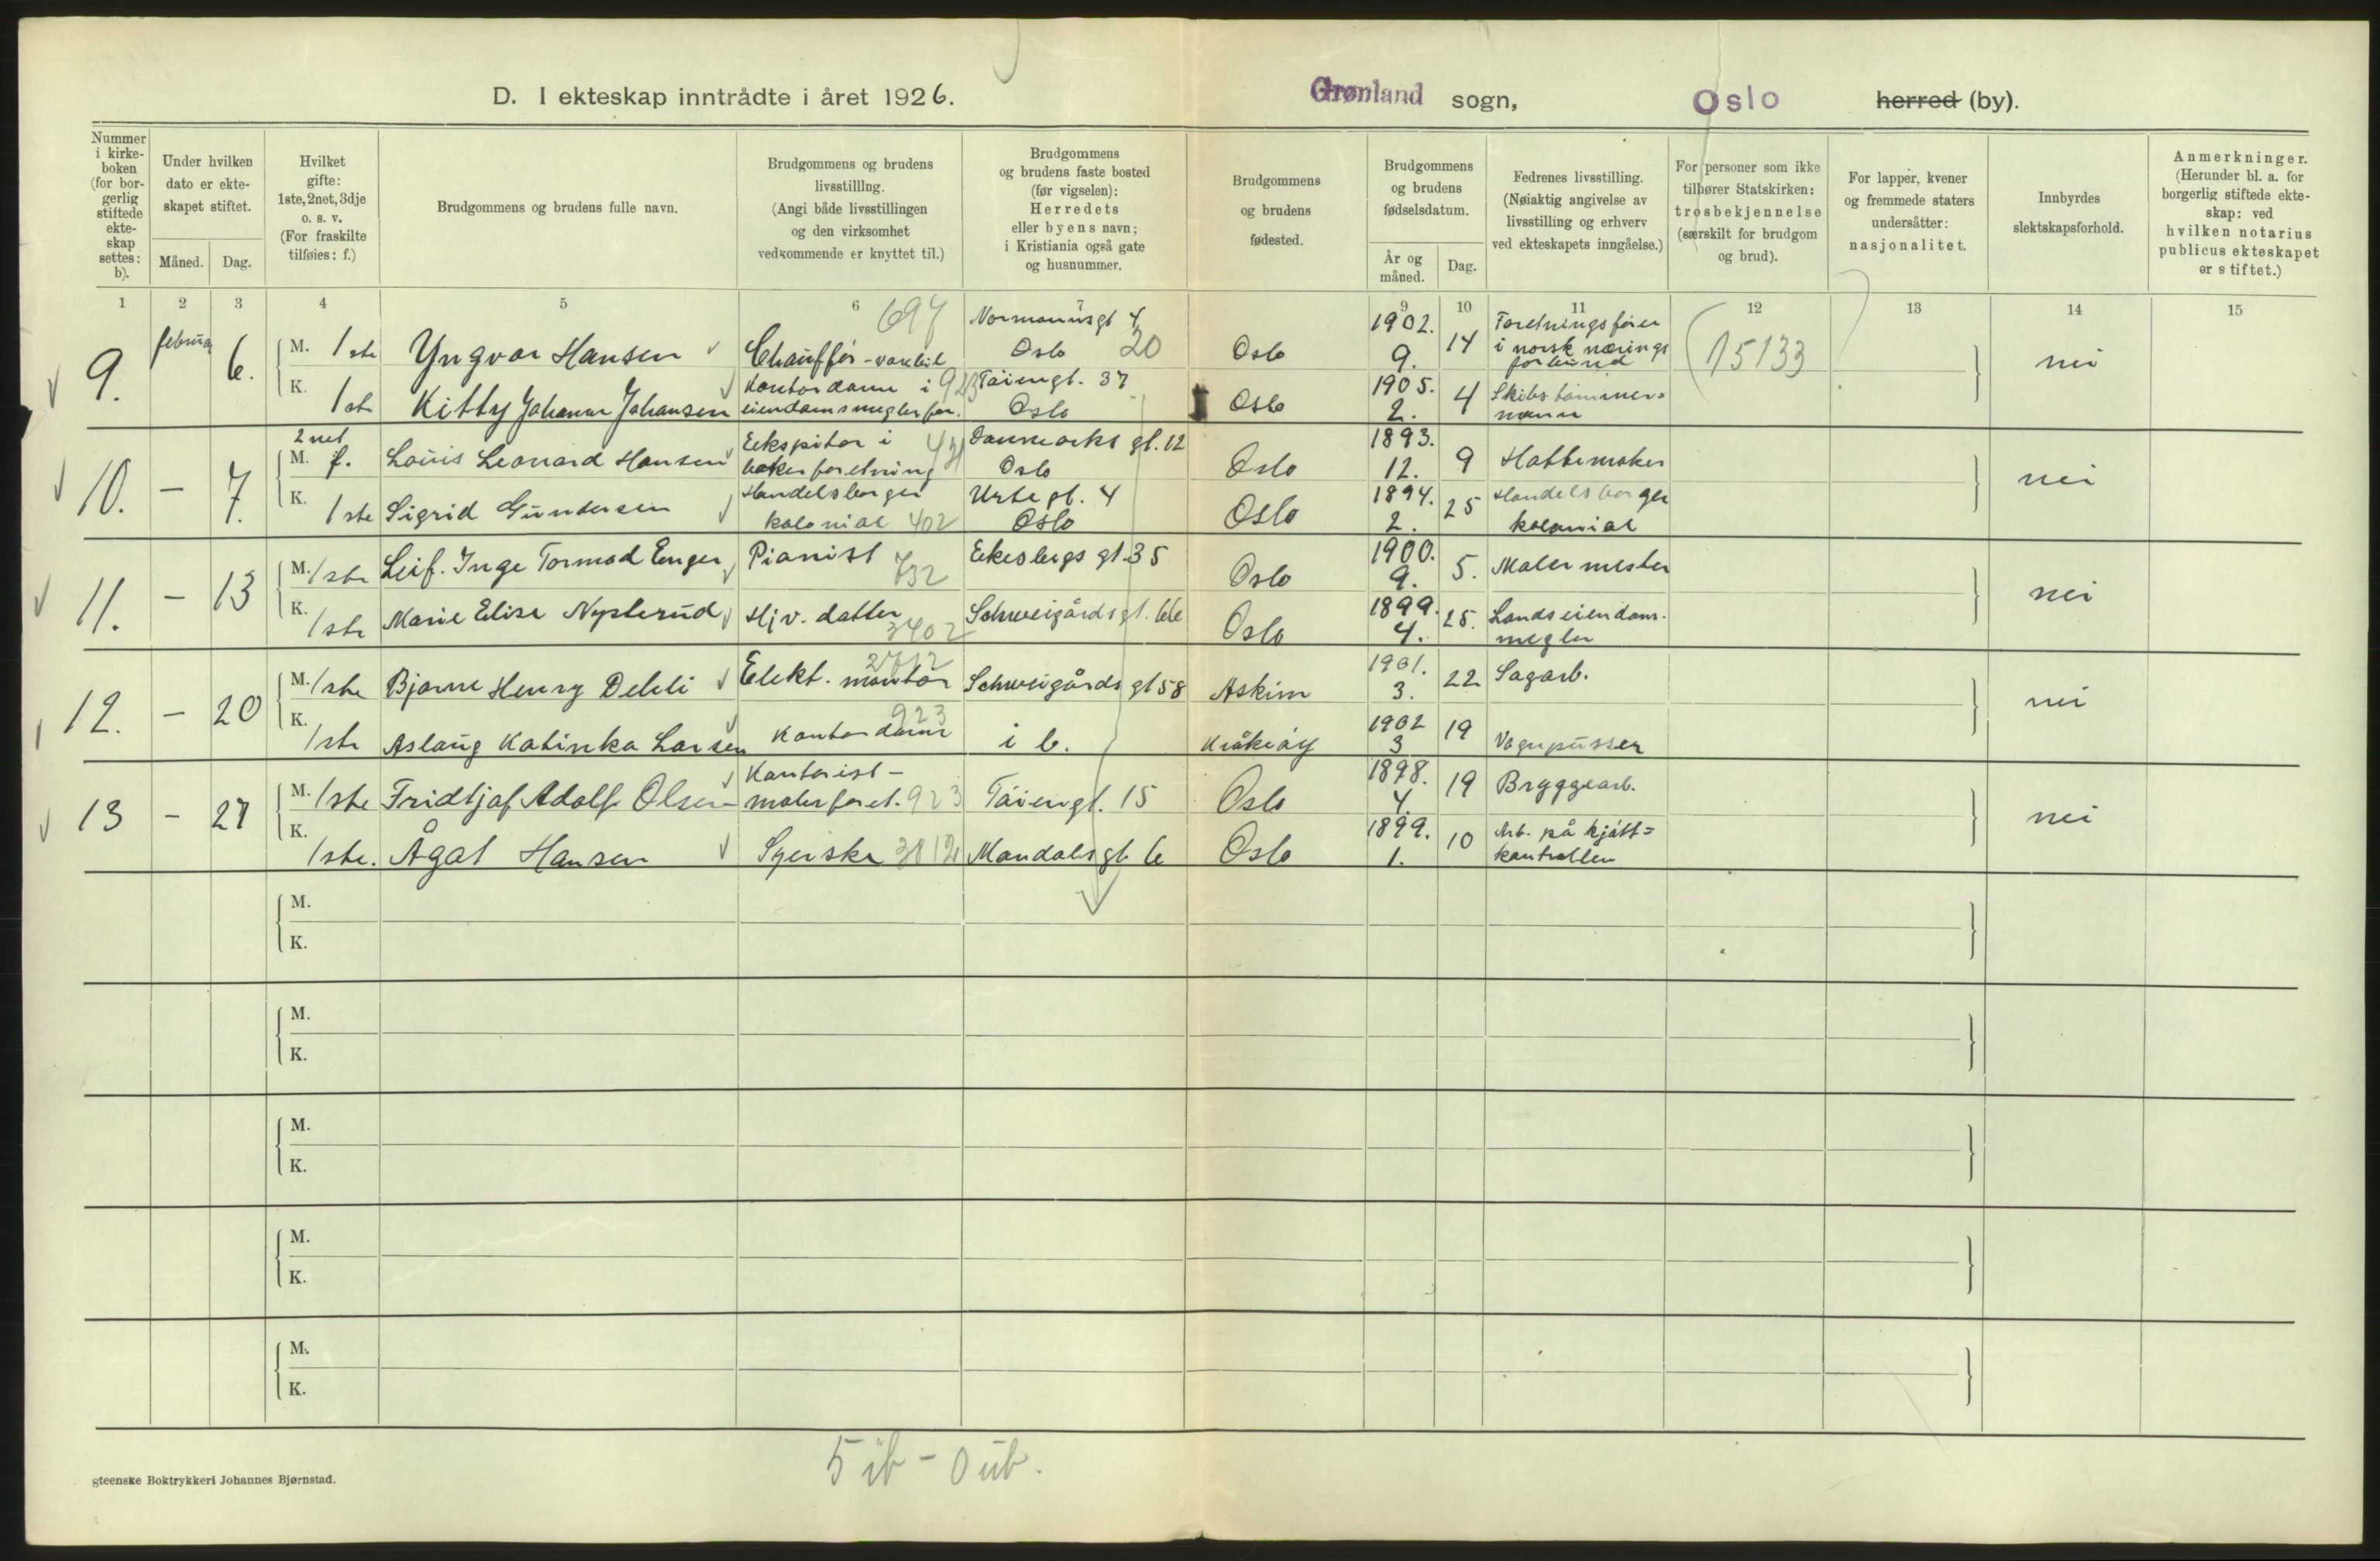 D. I ekteskap inntrådte i året 1926. Grønland sogn, Oslo herred (by).
Nummer i kirke-boken (for bor-gerlig stiftede ekte-skap settes: b).
Under hvilken dato er ekte-skapet stiftet.
Måned. Dag.
Hvilket gifte: 1ste, 2net, 3dje o. s. v. (For fraskilte tilføies: f.)
Brudgommens og brudens fulle navn.
Brudgommens og brudens livsstilling. (Angi både livsstillingen og den virksomhet vedkommende er knyttet til.)
Brudgommens og brudens faste bosted (før vigselen): Herredets eller byens navn; i Kristiania også gate og husnummer.
Brudgommens og brudens fødested.
Brudgommens og brudens fødselsdatum.
År og måned. Dag.
Fedrenes livsstilling. (Nøiaktig angivelse av livsstilling og erhverv ved ekteskapets inngåelse.)
For personer som ikke tilhører Statskirken: trosbekjennelse (særskilt for brudgom og brud).
For lapper, kvener og fremmede staters undersåtter: nasjonalitet.
Innbyrdes slektskapsforhold.
Anmerkninger. (Herunder bl. a. for borgerlig stiftede ekte-skap: ved hvilken notarius publicus ekteskapet er stiftet.)
1 2 3 4 5 6 7 9 10 11 12 13 14 15
9. februar 6. M. 1ste Yngvar Hansen Chauffør - varebil 697 Normannsgt 4 Oslo 20 Oslo 1902. 9. 14 Foretningsfører i norsk nærings forbund 15133 nei
K. 1ste Kitty Johanne Johansen Kontordame i eiendomsmeglerfor. 923 Tøiengt. 37 Oslo Oslo 1905. 2. 4 Skibstømmer= mann
10. - 7. 2net M. f. Louis Leonard Hansen Ekspitør i bakerforetning Danmarks gt. 12 Oslo Oslo 1893. 12. 9 Hattemaker nei
K. 1ste Sigrid Gundersen Handelsborger kolonial 402 Urtegt. 4 Oslo Oslo 1894. 2. 25 Handelsborger kolonial
11. - 13 M. 1ste Leif. Inge Tormod Enger Pianist 732 Ekebergs gt. 35 Oslo 1900. 9. 5. Malermester nei
K. 1ste Marie Elise Nysterud Hjv. datter 3402 Schweigårdsgt. 66 Oslo 1899. 4. 25. Landseiendoms. megler
12. - 20 M. 1ste Bjarne Henry Deleli Elekt. montør Schweigårds gt 58 Askim 1901. 3. 22 Sagarb. nei
K. 1ste Aslaug Katinka Larsen Kontordame 923 i b. Kråkerøy 1902 3 19 Vognpusser
13 - 27 M. 1ste Fridtjof Adolf Olsen Kontorist - malerforet. 923 Tøiengt. 15 Oslo 1898. 4. 19 Bryggearb. nei
K. 1ste. Ågot Hansen Syerske 3812 Mandalsgt 6 Oslo 1899. 1. 10 Arb. på kjøtt= kontrollen
M.
K.
M.
K.
M.
K.
M.
K.
M.
K.
5 ib - 0 ub.
steenske Boktrykkeri Johannes Bjørnstad.